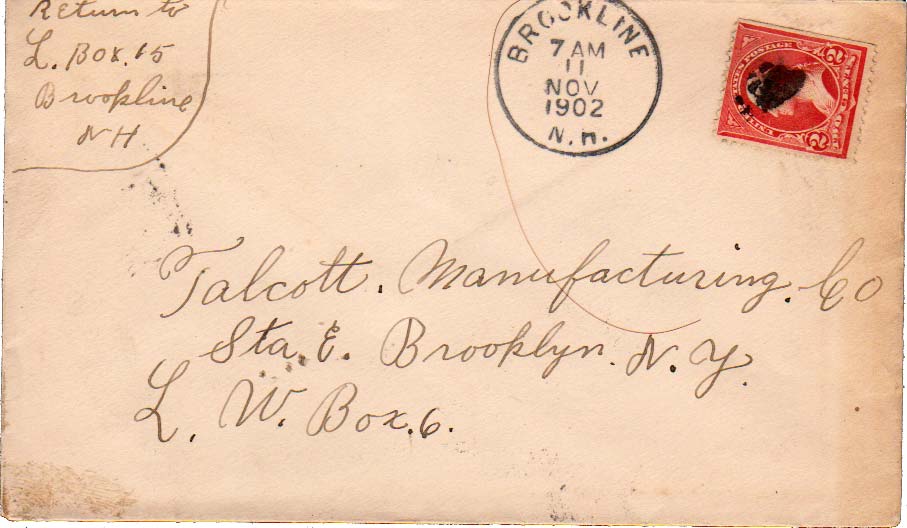 Return to
L. Box. 15
Brookline
NH
BROOKLINE
7 AM
11
NOV
1902
N.H.
2 2
Talcott. Manufacturing. Co
Sta. E. Brooklyn. N. Y.
L. W. Box. 6.